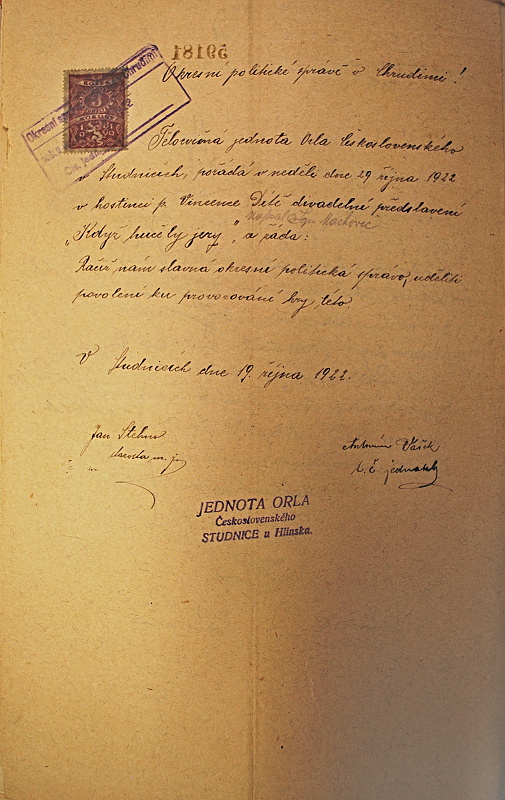 59181
Okresní politické správě v Chrudimi!
Tělocvičná jednota Orla Československého
v Studnicích, pořádá v neděli dne 29 října 1922
v hostinci p. Vincence Dítě divadelné představení
Napsal Machovec
„Když hučely jezy", a žádá:
Račiž nám slavná okresné politická správa, uděliti
povolení ku provozování hry této.
V Studnicích dne 19. října 1922.
Jan
Antonín Vašek
t. č. jednatel
JEDNOTA ORLA
Československého
STUDNICE u Hlinska.